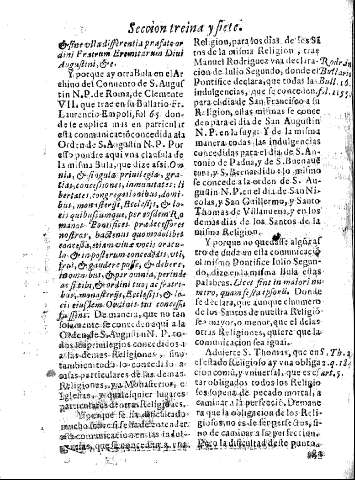 Seccion treina y siete.
& sine vlla differentia præfato or
dini Fratrum Eremitarum Diui
Augustini, &c.
Y porque ay otra Bula en el Ar
chiuo del Conuento de S. Augus
tin N. P. de Roma, de Clemente
VII. que trae en su Bullario Fr.
Laurencio Empoli, fol. 65. don
de se explica mas en particular
esta comunicación concedida a la
Orden de S. Augustin N. P. Por
esso pondre aqui vna clausula de
la misma Bula, que dize assi: Om
nia, & singula priuilegia, gra
tias, concessiones, inmunitates: li
bertates, congregationibus, domi
bus, monasterijs, Ecclesijs, & lo
cis quibuscumque, per eosdem Ro
manos Pontifices prædecessores
nostros, hactenus quomodolibet
concessa, etiam viuæ vocis oracu
lo, & in posterum concedenda, vti,
frui, & gaudere posse, & debere,
in omnibus, & per omnia, perinde
ac si ordinibus, ac fratri
bus, monasterijs, Ecclesijs, & lo
cis eiusdem
fuissent: De manera, que no tan
solamente se concede aqui a la
Orden de S. Augustin N. P. to
dos los priuilegios concedidos a
las demas Religiones, sino
tambien todo lo concedido a
casas particulares de las demas
Religiones, y a Monasterios, e
Iglesias, y qualquier lugares
particulares de otras Religiones.
Y porque se ha dificultado
mucho como se ha de entender
la comunicacion en las indul
gencias, que se conceden a otra
Religion, para los dias de los Sã
tos de la misma Religion, trae
Manuel Rodriguez vna declara-
cion de Iulio Segundo, donde el
Pontifice declara, que todas las
indulgencias, que se concedieron
para el dia de San Francisco a su
Religion, essas mismas se conce
den para el dia de San Augustin
N. P. en la suya: Y de la misma
manera todas las indulgencias
concedidas para el dia de S. An-
tonio de Padua, y de S. Buenauẽ
tura, y S. Bernardino: lo mismo
se concede a la orden de S. Au-
gustin N. P. en el dia de San Ni-
colas, y San Guillermo, y Santo
Thomas de Villanueua, y en los
demas dias de los Santos de la
misma Religion.
Y porque no quedasse alguna
cosa de duda en esta comunicaciõ
el mismo Pontifice Iulio Segun-
do, dize en la misma Bula estas
palabras. Licet sint in maiori nu
mero, quam sexta ipsorũ. Donde
se declara, que aunque el numero
de los Santos de nuestra Religiõ
sea mayor, o menor, que el de las
otras Religiones, quiere que la
comunicacion sea igual.
Aduierte S. Thomas, que en
el estado Religioso ay vna obliga
cion comũ, y vniuersal, que es es
tar obligados todos los Religio
sos so pena de pecado mortal, a
caminar a la perfeccion. Demane
ra que la obligacion de los Reli
giosos, no es de ser perfectos, si-
no de caminar a ser perfectos.
Pero la dificultad de este punto,
Rodriã
Bullario
Bull. 16.
fol. 155.
S. Th. 2.
2. q. 184
art. 5.